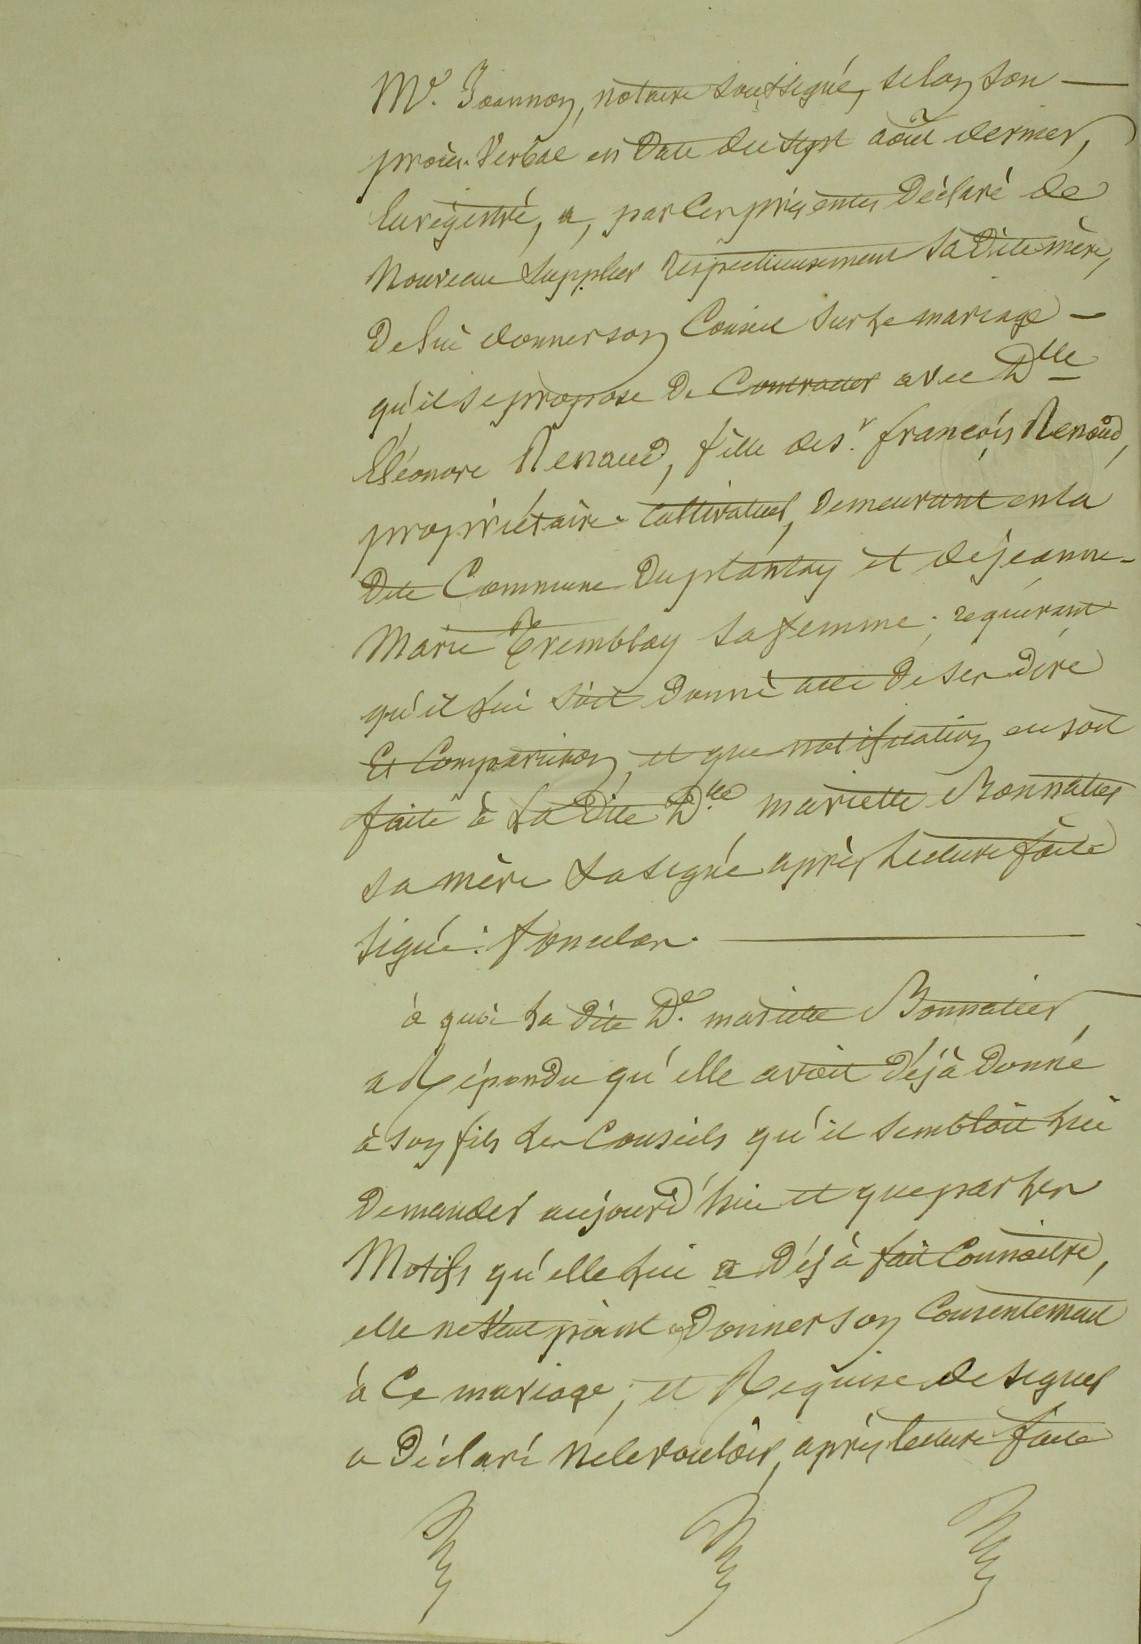 Me. Joannon, notaire soussigné, selon son —
procès-Verbal en Date du sept août dernier,
Enregistré, a, par les présentes Déclaré de
Nouveau Supplier respectueusement Sa Dite mère,
De lui donner son Conseil sur le mariage —
qu'il se propose De Contracter avec Dlle
Eléonore Renaud, fille de sr. françois Renaud,
propriétaire-Cultivateur, Demeurant en la
Dite Commune Duplantay et de jeanne-
Marie Tremblay sa femme; requérant
qu'il lui soit Donné acte De ses Dire
Et Comparution, et que notification en soit
faite à la Dite De mariette Bonnatier
sa mère La signé après Lecture faite
signé:
à quoi La Dite De. mariette Bonnatier
a Répondu qu'elle avoit Déjà Donné
à son fils Les Conseils qu'il sembloit lui
Demander aujourd'hui et que par les
Motifs qu'elle lui a Déjà fait Connoitre,
elle ne Veut point Donner son Consentement
à Ce mariage; et Requise de signer
a Déclaré ne le vouloir, après lecture faite